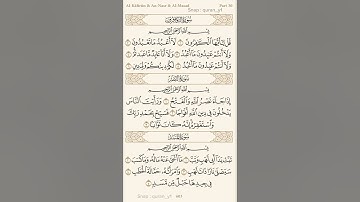 Al-Kafirun & An-Nasr & Al-Masad Part 30
Snap: quran_yf
سورة الكافرون
بسم الله الرحمن الرحيم
قل يا أيها الكافرون ١ لا أعبد ما تعبدون
٢ ولا أنتم عابدون ما أعبد ٣ ولا أنا عابد ما عبدتم
٤ ولا أنتم عابدون ما أعبد ٥ لكم دينكم ولي دين ٦
سورة النصر
بسم الله الرحمن الرحيم
إذا جاء نصر الله والفتح ١ ورأيت الناس
يدخلون في دين الله أفواجا ٢ فسبح بحمد ربك
واستغفره إنه كان توابا ٣
سورة المسد
بسم الله الرحمن الرحيم
تبت يدا أبي لهب وتب ١ ما أغنى عنه ماله وما كسب
٢ سيصلى نارا ذات لهب ٣ وامرأته حمالة الحطب
٤ في جيدها حبل من مسد ٥
Snap: quran_yf 603